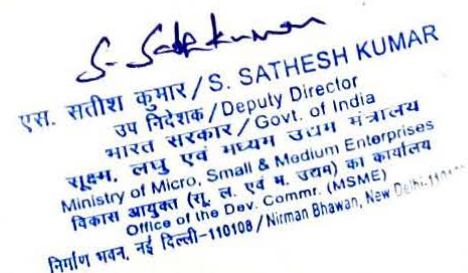 S. Sathkumar
एस. सतीश कुमार/S. SATHESH KUMAR
उप निदेशक/Deputy Director
भारत सरकार/Govt. of India
सूक्ष्म, लघु एवं मध्यम उद्यम मंत्रालय
Ministry of Micro, Small & Medium Enterprises
विकास आयुक्त (सू. ल. एवं म. उद्यम) का कार्यालय
Office of the Dev. Commr. (MSME)
निर्माण भवन, नई दिल्ली-110108/Nirman Bhawan, New Delhi-